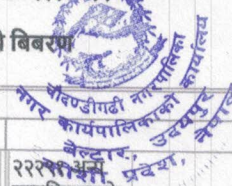 बिबरण
चौदण्डीगढी नगरपालिका
नगर कार्यपालिकाको कार्यालय
बेल्टार, उदयपुर
प्रदेश, नेपाल